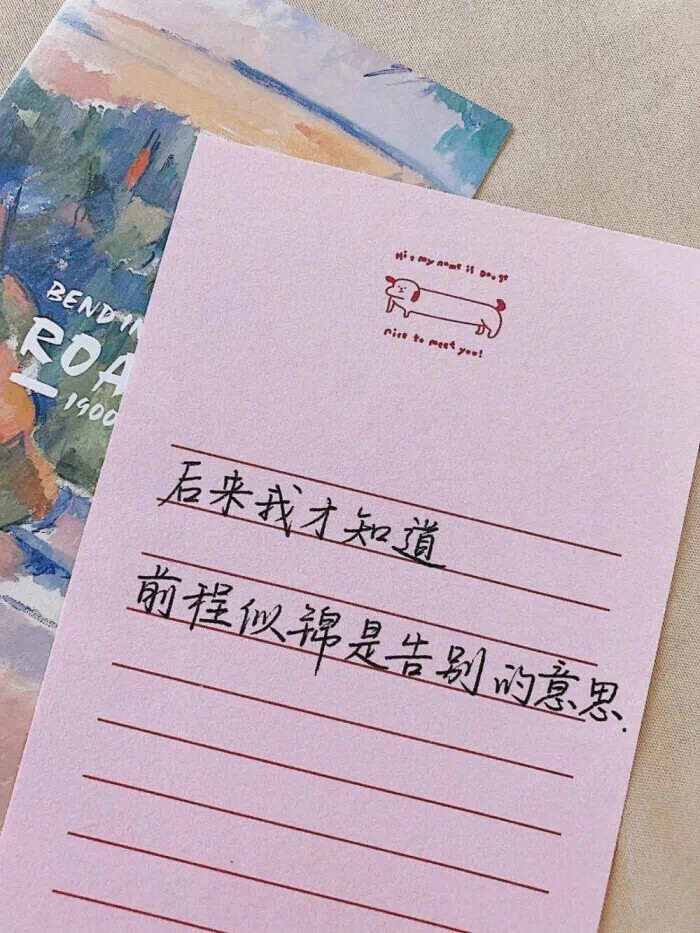 BEND IN
ROA
1900
Hi, my name is Dooge
nice to meet you!
后来我才知道
前程似锦是告别的意思.